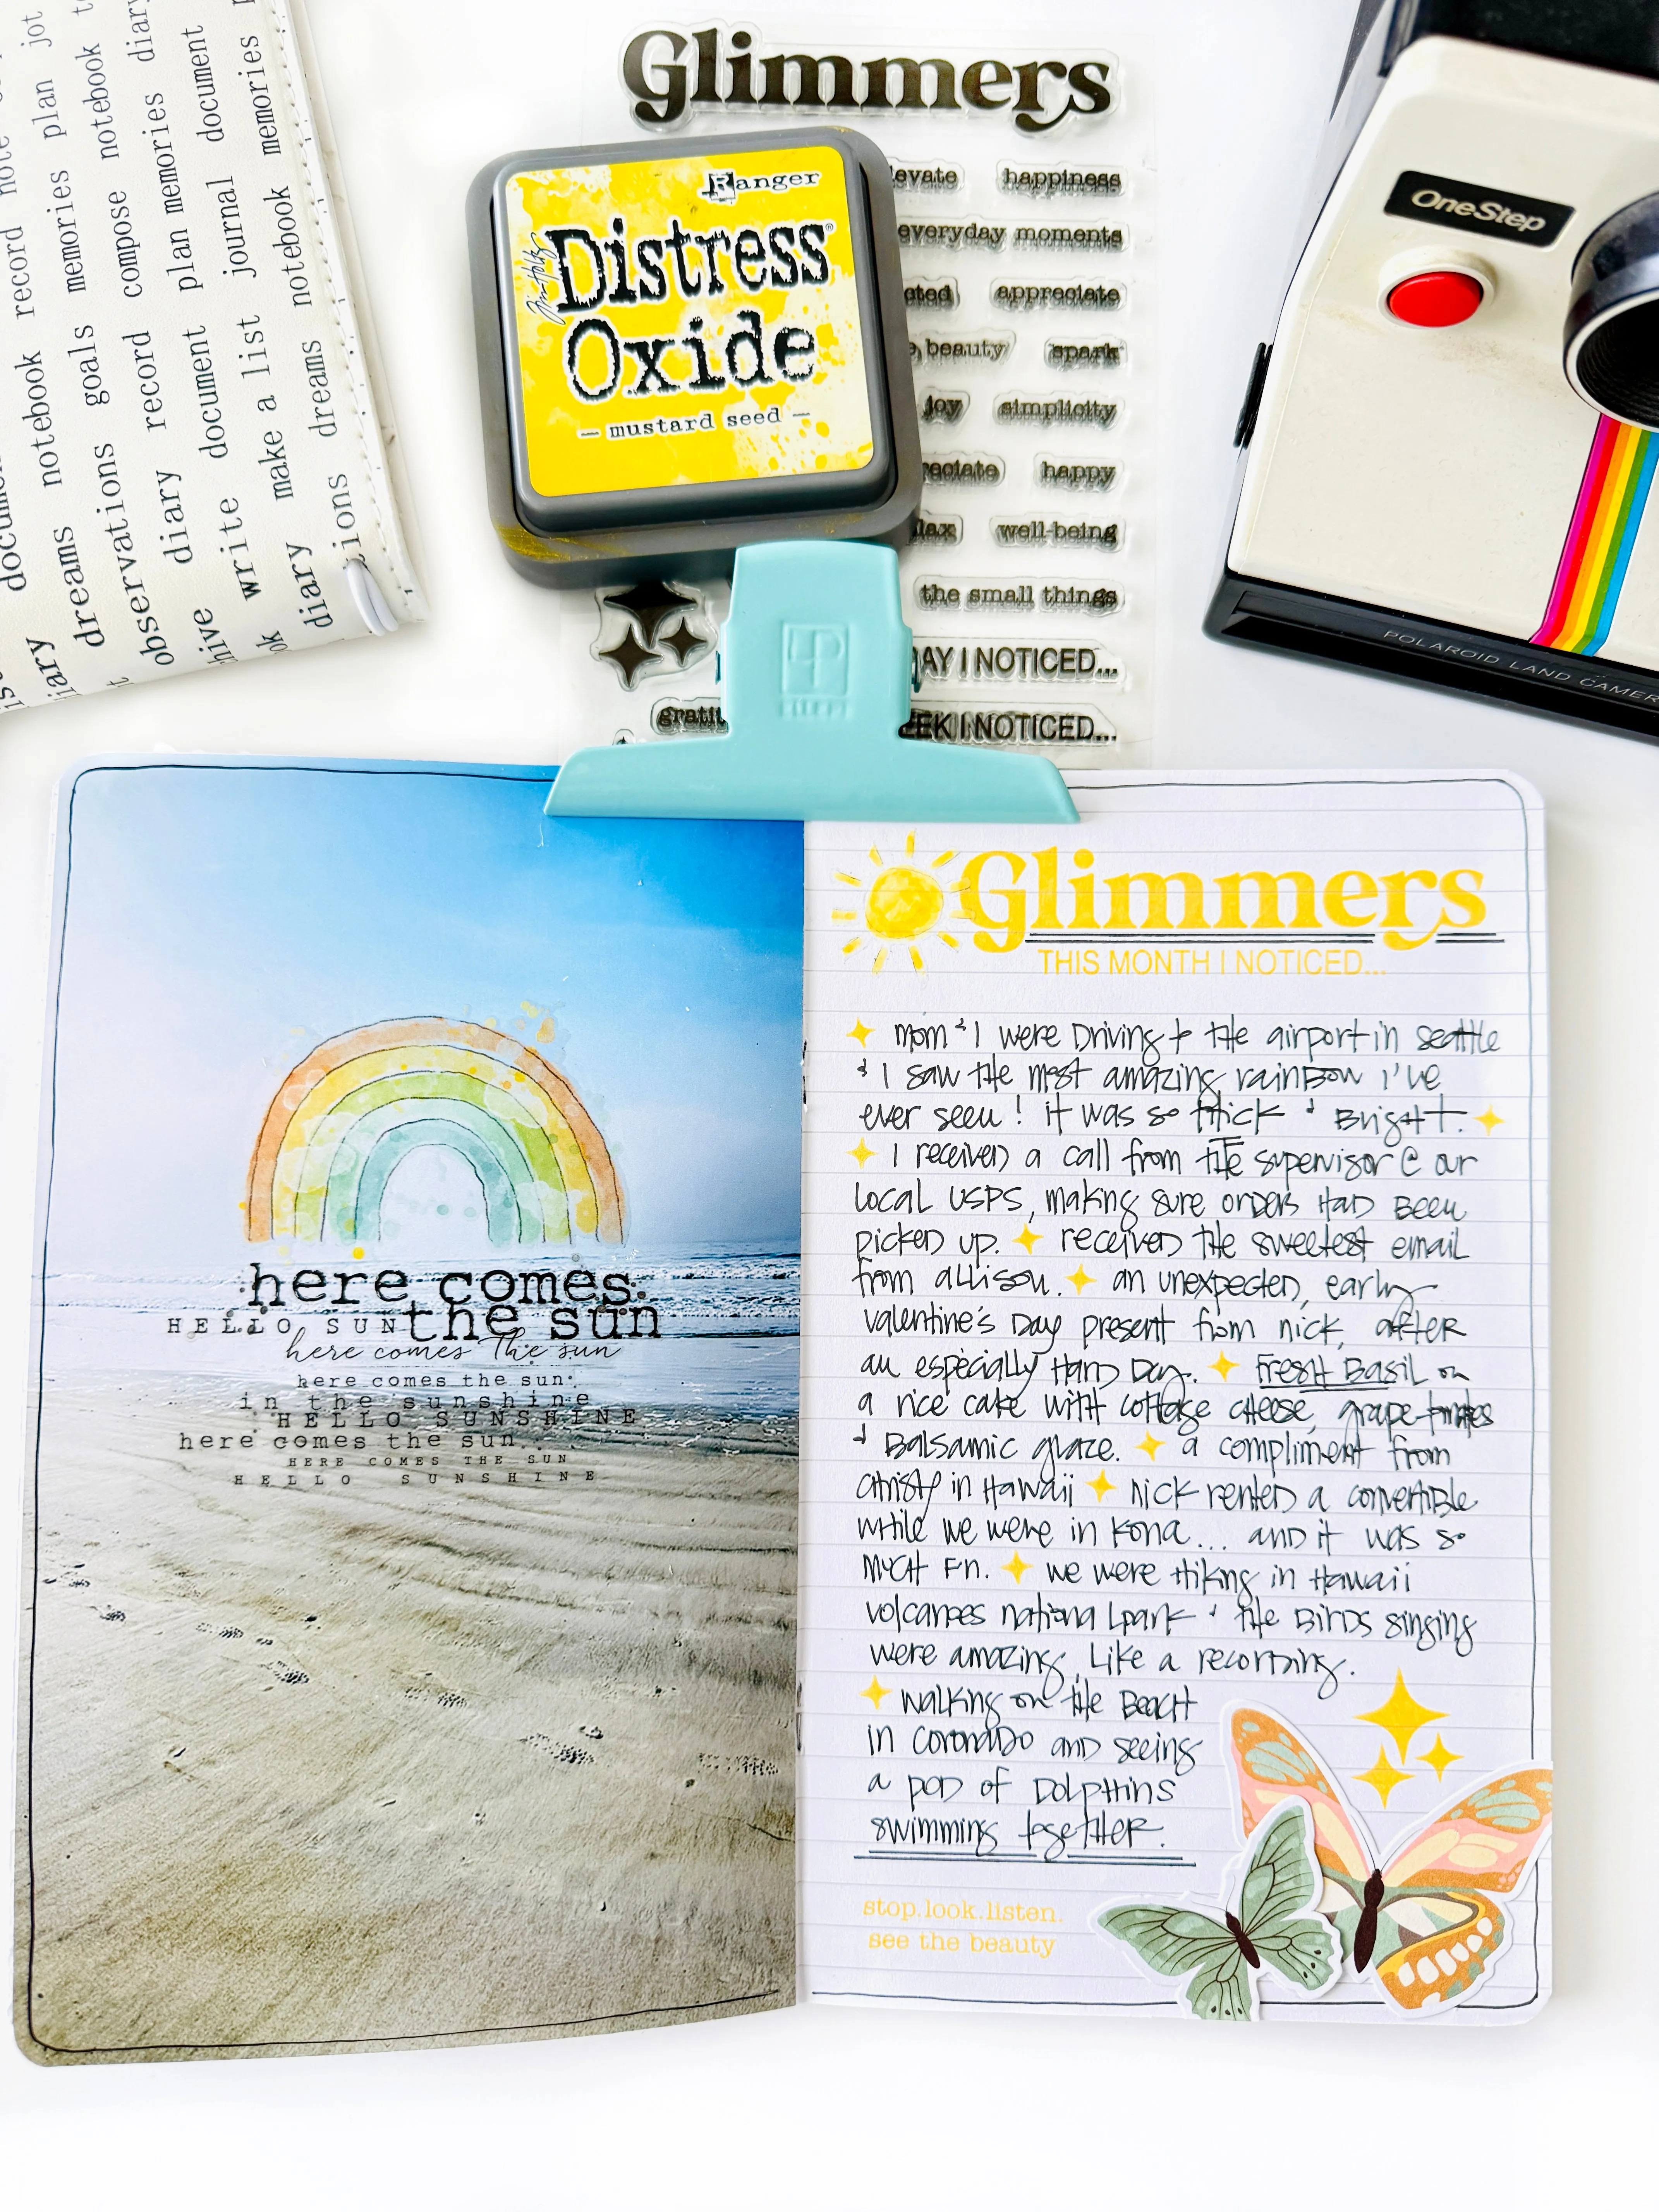 Glimmers
Ranger
Tim Holtz
Distress®
Oxide
— mustard seed —
evate happiness
everyday moments
cted appreciate
beauty spark
joy simplicity
reciate happy
lax well-being
the small things
AY I NOTICED...
gratit
EEK I NOTICED...
OneStep
POLAROID LAND CAMER
notebook record note
memories plan jot
dreams goals
compose notebook
observations record memories diary
diary plan memories
write document journal document
diary make a list notebook memories
dreams
here comes
the sun
HELLO SUN
here comes the sun
here comes the sun
in the sunshine
HELLO SUNSHINE
here comes the sun...
HERE COMES THE SUN
HELLO SUNSHINE
Glimmers
THIS MONTH I NOTICED...
mom & I were Driving to the airport in seattle
& I saw the most amazing rainbow I've
ever seen! it was so thick & Bright.
I received a call from the supervisor @ our
local USPS, making sure orders Had Been
picked up. received the sweetest email
from allison. an unexpected, early
valentine's Day present from nick, after
an especially Hard Day. Fresh Basil on
a rice cake with cottage cheese, grape tomatoes
& Balsamic glaze. a compliment from
christy in Hawaii nick rented a convertible
while we were in Kona... and it was so
much Fn. we were Hiking in Hawaii
volcanoes national park & the Birds singing
were amazing, Like a recording.
walking on the Beach
in coronado and seeing
a pod of Dolphins
swimming together.
stop.look.listen.
see the beauty